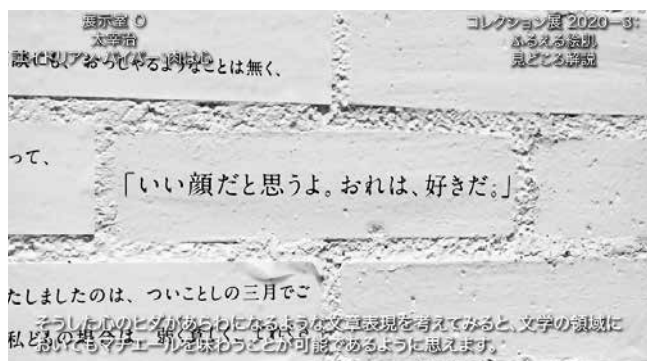 展示室 O
太宰治
コレクション展 2020–3:
ふるえる絵肌
見どころ解説
おっしゃるようなことは無く、
って、
「いい顔だと思うよ。おれは、好きだ。」
たしましたのは、ついことしの三月でご
私どもの場合は、
そうした心のヒダがあらわになるような文章表現を考えてみると、文学の領域に
おいてもマチエールを味わうことが可能であるように思えます。